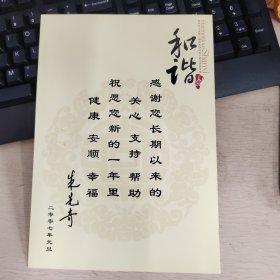 和谐
感谢您长期以来的
关心 支持 帮助
祝愿您新的一年里
健康 安顺 幸福
二零零七年元旦